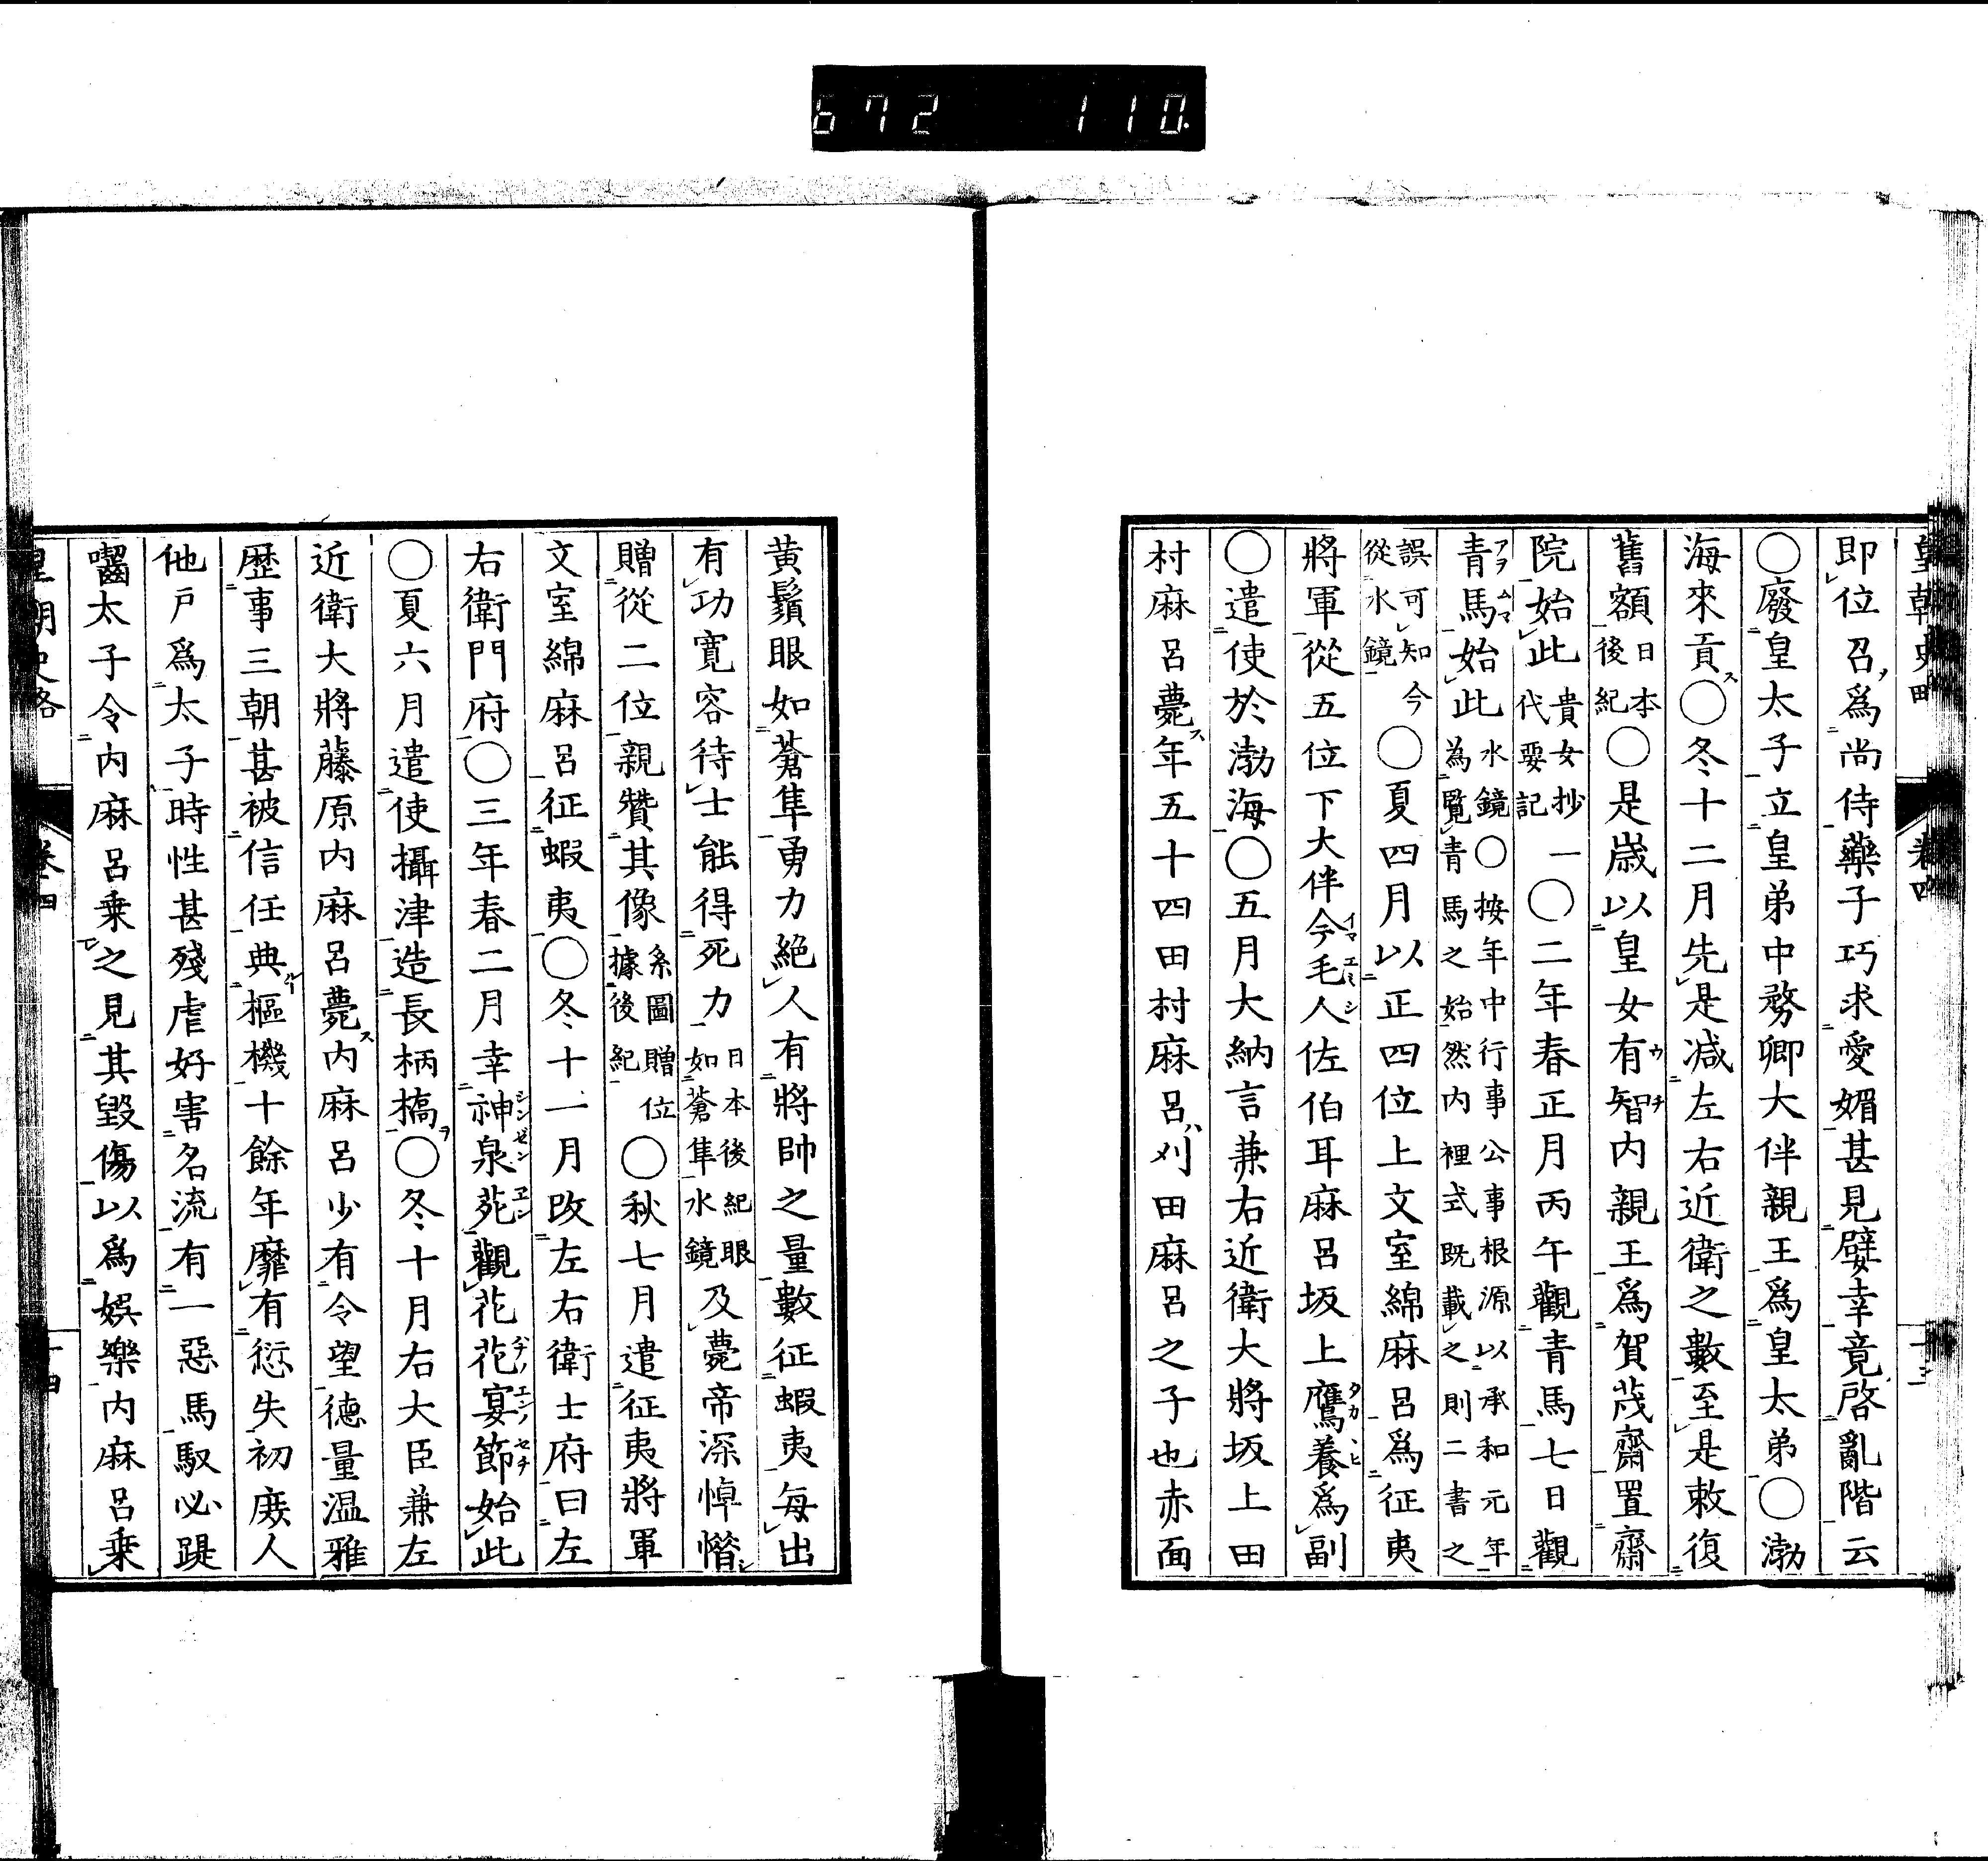 672 110.
皇朝史略 卷四
即位召爲尚侍藥子巧求愛媚甚見嬖幸竟啓亂階云
〇廢皇太子立皇弟中務卿大伴親王爲皇太弟〇渤
海來貢ス〇冬十二月先是減左右近衛之數至是敕復
舊額日本後紀〇是歲以皇女有智内親王爲賀茂齋置齋
院始此貴女抄代要記一〇二年春正月丙午觀青馬七日觀
青馬始此水鏡〇按年中行事公事根源以承和元年為覽青馬之始然内裡式既載之則二書之
誤可知今從水鏡〇夏四月以正四位上文室綿麻呂爲征夷
將軍從五位下大伴今毛人佐伯耳麻呂坂上鷹養爲副
〇遣使於渤海〇五月大納言兼右近衛大將坂上田
村麻呂薨ス年五十四田村麻呂ハ刈田麻呂之子也赤面
黄鬚眼如蒼隼勇力絶人有將帥之量數征蝦夷每出
有功寛容待士能得死力日本後紀眼如蒼隼水鏡及薨帝深悼惜
贈從二位親贊其像系圖贈位據後紀〇秋七月遣征夷將軍
文室綿麻呂征蝦夷〇冬十一月改左右衛士府曰左
右衛門府〇三年春二月幸神泉苑觀花花宴節始此
〇夏六月遣使攝津造長柄橋ヲ〇冬十月右大臣兼左
近衛大將藤原内麻呂薨ス内麻呂少有令望德量温雅
歴事三朝甚被信任典樞機十餘年靡有愆失初廢人
他戸爲太子時性甚殘虐好害名流有一惡馬馭必踶
囓太子令内麻呂乗之見其毀傷以爲娯樂内麻呂乗
皇朝史略 卷四 十四